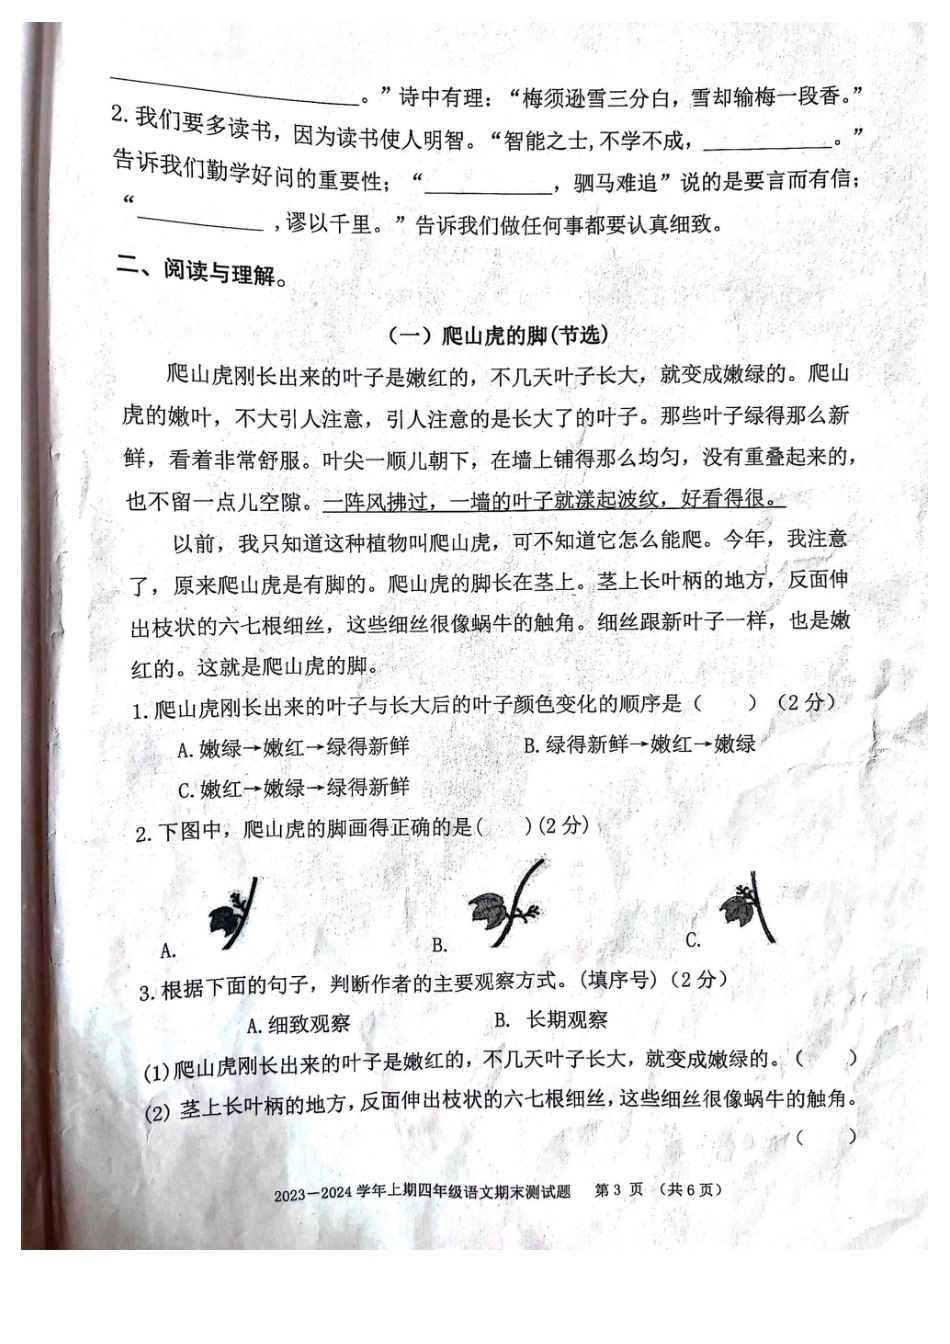 ____________。”诗中有理：“梅须逊雪三分白，雪却输梅一段香。”
2.我们要多读书，因为读书使人明智。“智能之士,不学不成，____________。”
告诉我们勤学好问的重要性；“____________，驷马难追”说的是要言而有信；
“____________,谬以千里。”告诉我们做任何事都要认真细致。
二、阅读与理解。
（一）爬山虎的脚(节选)
爬山虎刚长出来的叶子是嫩红的，不几天叶子长大，就变成嫩绿的。爬山
虎的嫩叶，不大引人注意，引人注意的是长大了的叶子。那些叶子绿得那么新
鲜，看着非常舒服。叶尖一顺儿朝下，在墙上铺得那么均匀，没有重叠起来的，
也不留一点儿空隙。一阵风拂过，一墙的叶子就漾起波纹，好看得很。
以前，我只知道这种植物叫爬山虎，可不知道它怎么能爬。今年，我注意
了，原来爬山虎是有脚的。爬山虎的脚长在茎上。茎上长叶柄的地方，反面伸
出枝状的六七根细丝，这些细丝很像蜗牛的触角。细丝跟新叶子一样，也是嫩
红的。这就是爬山虎的脚。
1.爬山虎刚长出来的叶子与长大后的叶子颜色变化的顺序是（　　）（2分）
A.嫩绿→嫩红→绿得新鲜　　B.绿得新鲜→嫩红→嫩绿
C.嫩红→嫩绿→绿得新鲜
2.下图中，爬山虎的脚画得正确的是(　　)(2分)
A.　　B.　　C.
3.根据下面的句子，判断作者的主要观察方式。(填序号)（2分）
A.细致观察　　B. 长期观察
(1)爬山虎刚长出来的叶子是嫩红的，不几天叶子长大，就变成嫩绿的。（　　）
(2) 茎上长叶柄的地方,反面伸出枝状的六七根细丝,这些细丝很像蜗牛的触角。
（　　）
2023—2024学年上期四年级语文期末测试题　第3 页 （共6页）